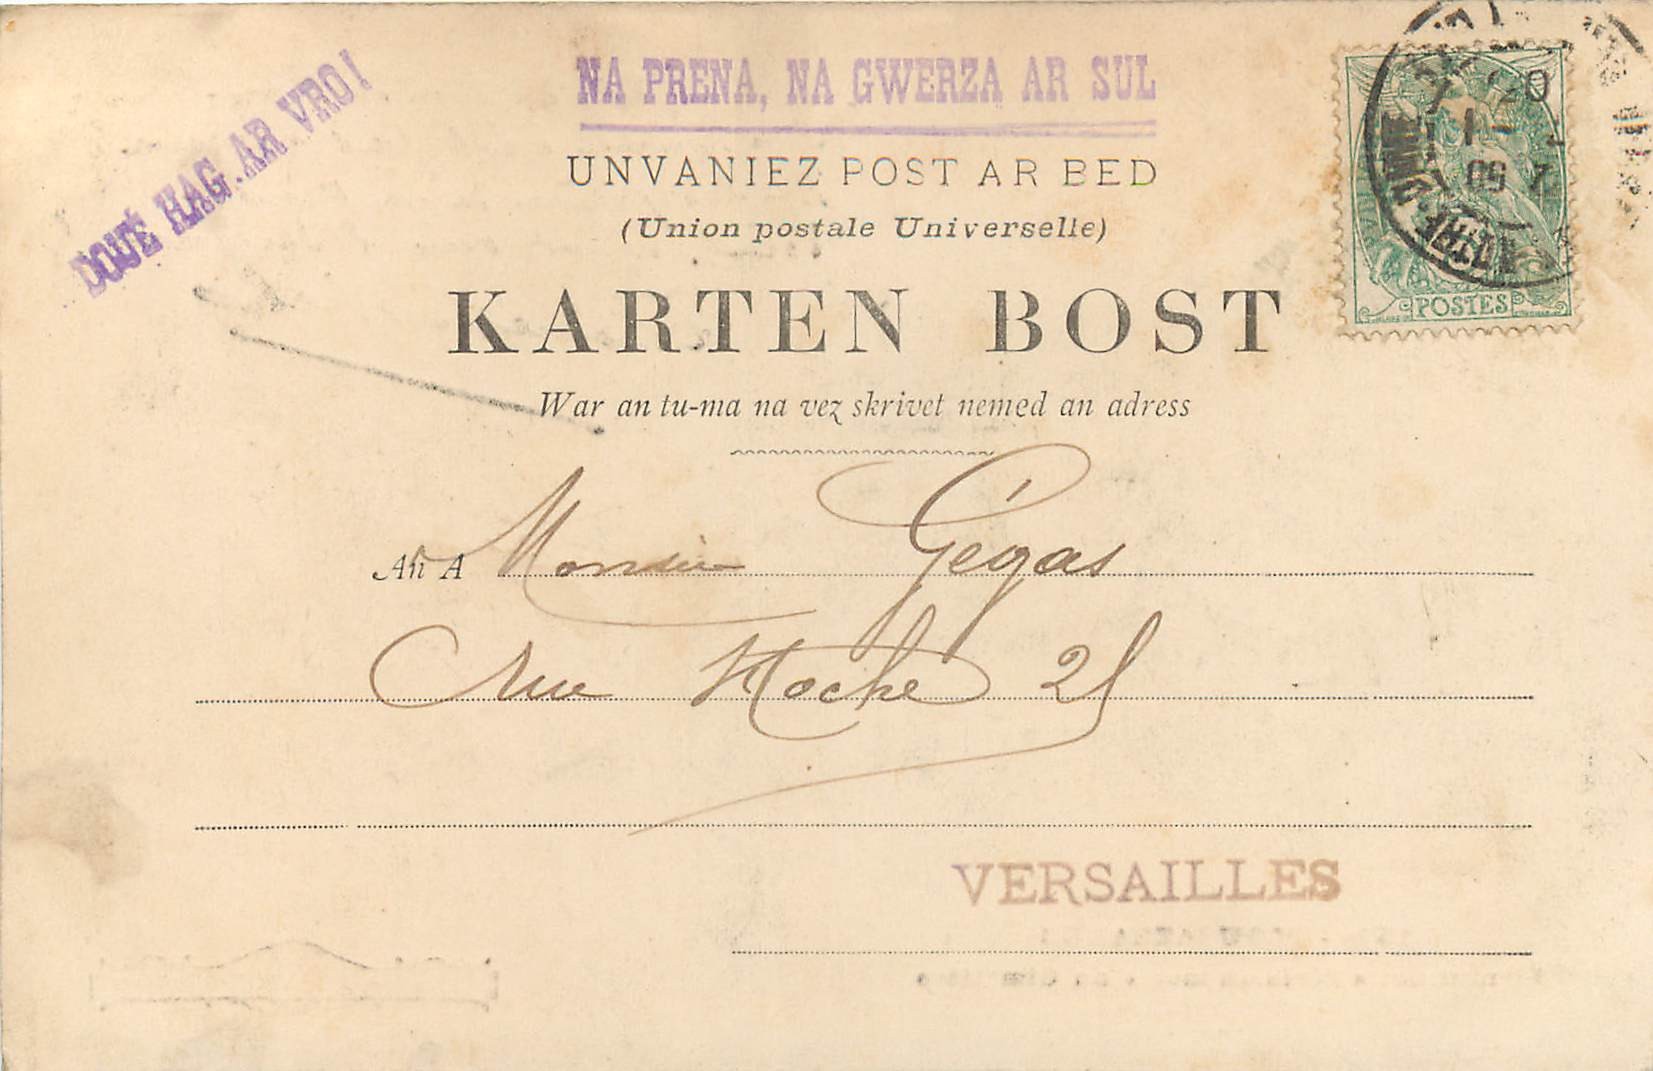 DOUÉ HAG AR VRO!
NA PRENA, NA GWERZA AR SUL
UNVANIEZ POST AR BED
(Union postale Universelle)
KARTEN BOST
War an tu-ma na vez skrivet nemed an adress
An A Monsieur Gégas
Rue Hoche 21
VERSAILLES
POSTES